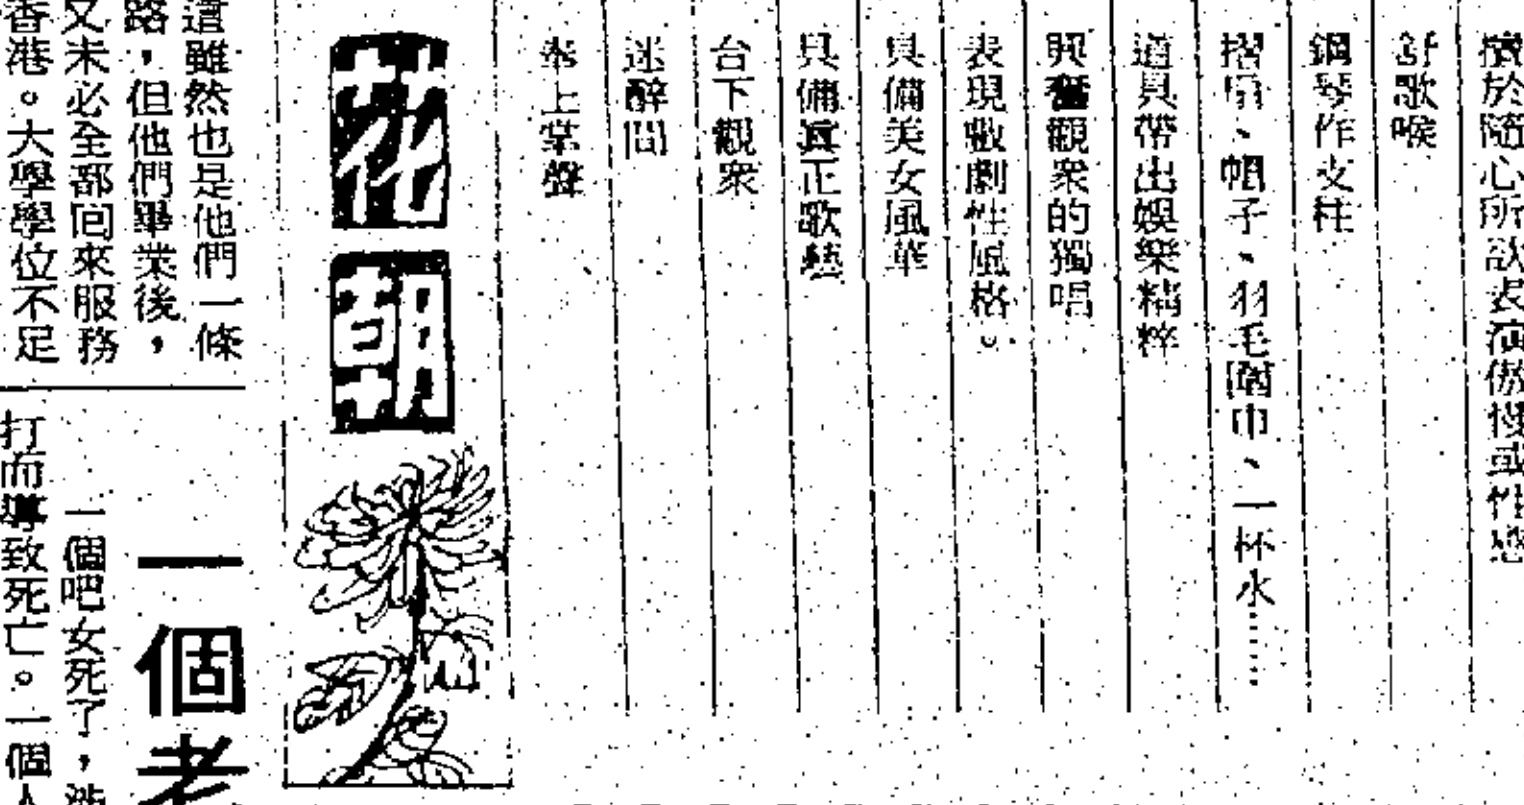 擅於隨心所欲表演傲慢或性感
舒歌喉
鋼琴作支柱
摺扇、帽子、羽毛圍巾、一杯水……
道具帶出娛樂精粹
興奮觀衆的獨唱
表現戲劇性風格。
具備美女風華
具備眞正歌藝
台下觀衆
迷醉間
奉上掌聲
花朝
這雖然也是他們一條
路，但他們畢業後，
又未必全部回來服務
香港。大學學位不足
一個老
一個吧女死了，涉
打而導致死亡。一個人